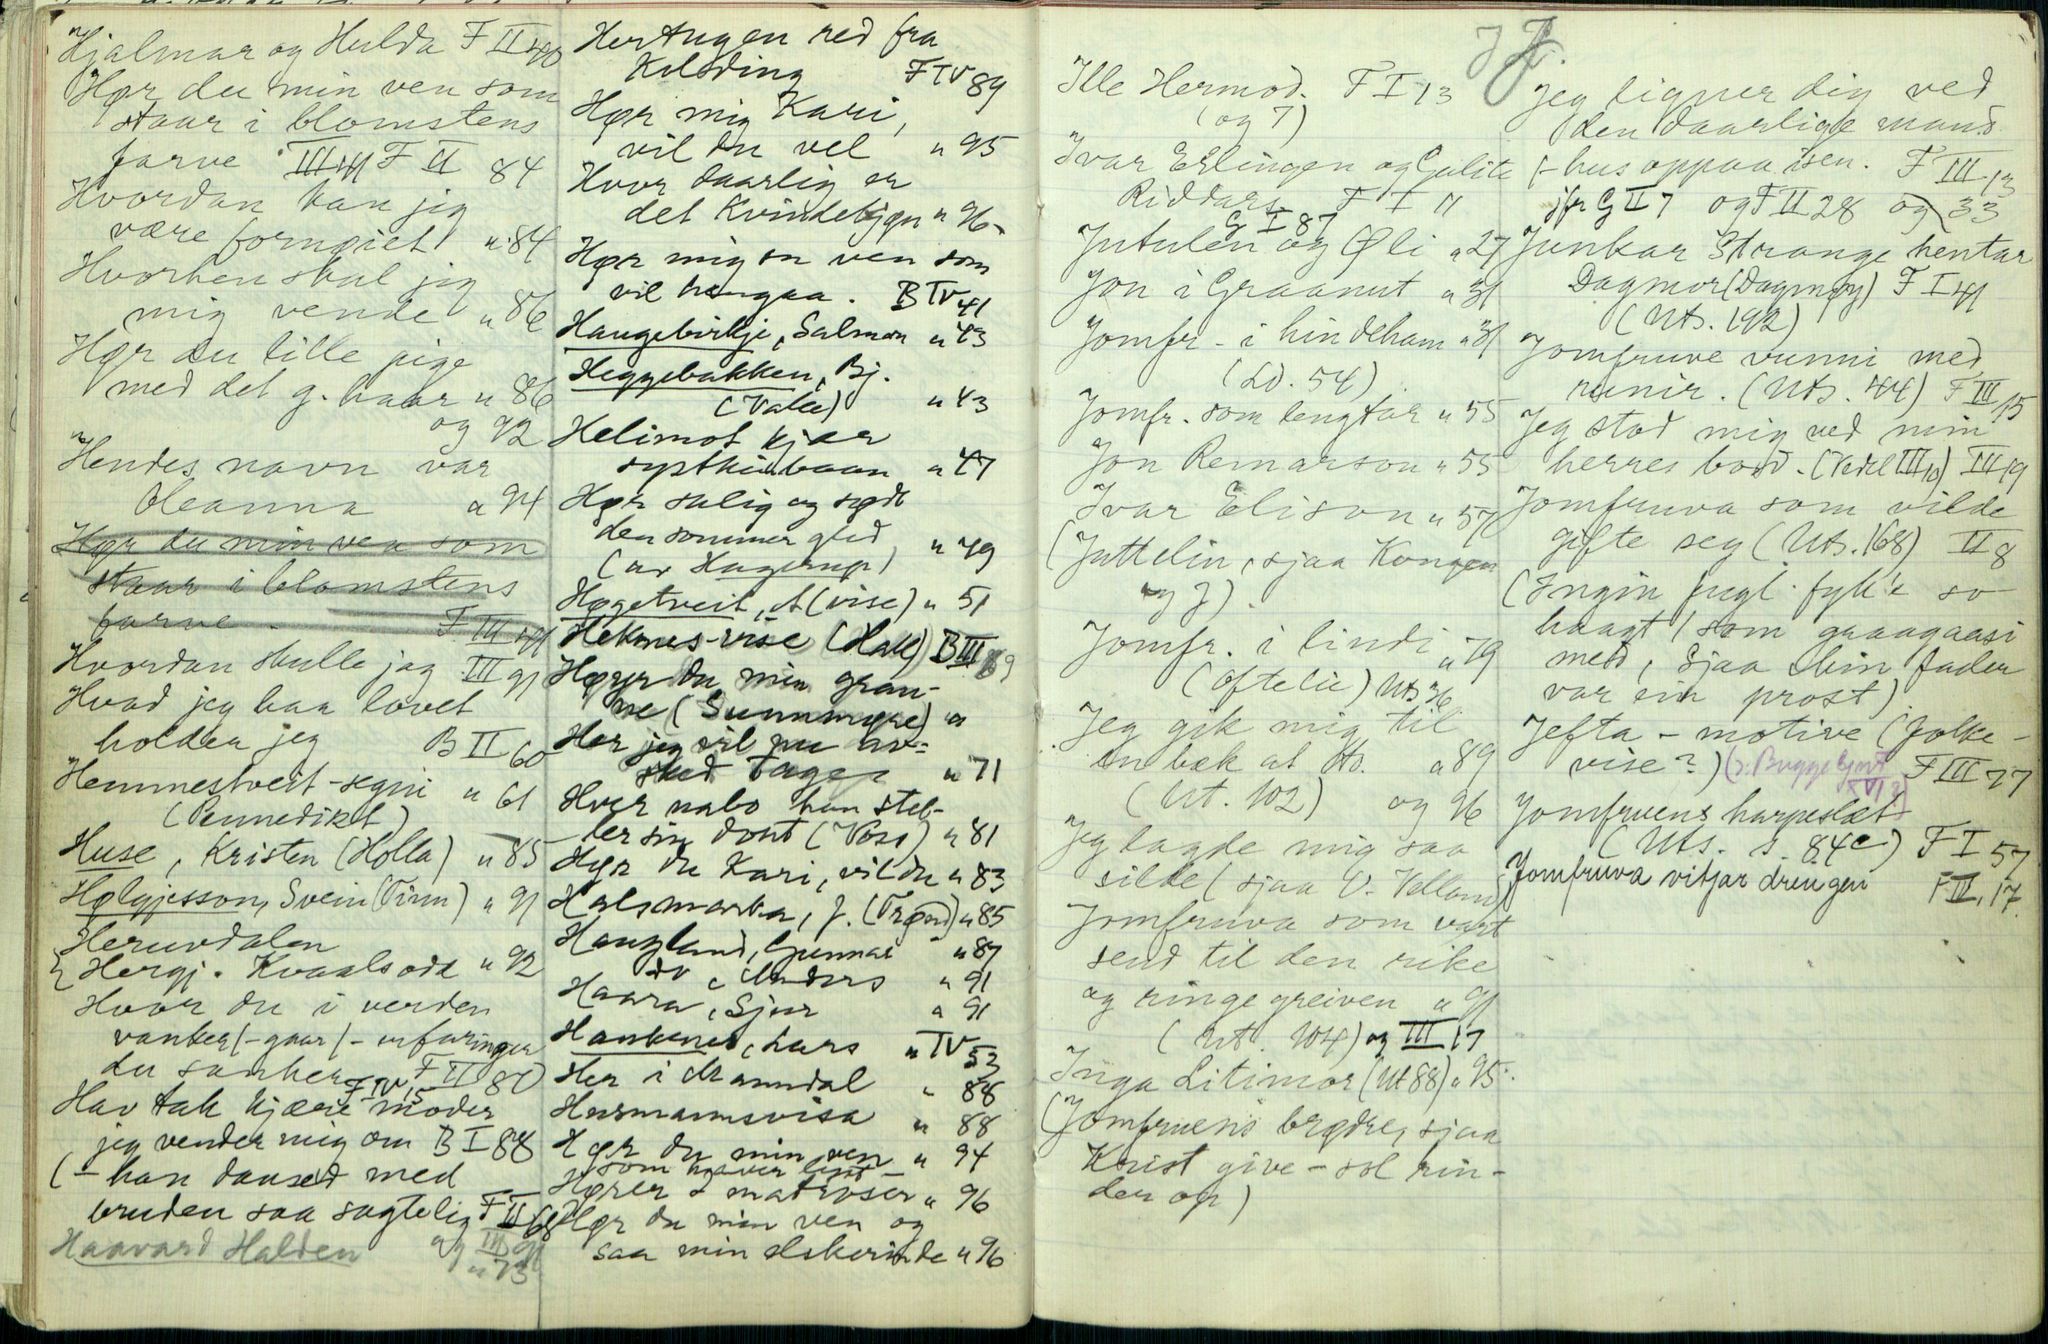 Hjalmar og Hulda F II 40
Hør du min ven som
staar i blomstens
farve III 41 F II 84
Hvordan kan jeg
være fornøiet " 84
Hvorhen skal jeg
mig vende " 86
Hør du lille pige
med det g. haar " 86
og 92
Hendes navn var
Oleanna " 94
Hør du min ven som
staar i blomstens
farve - F III 41
Hvordan skulle jag III 91
Hvad jeg haa lovet
holder jeg B II 60
Hemmestveit-segni " 61
(Pennedikt)
Huse, Kristen (Holla) " 85
Hølgjesson, Svein (Tinn) " 91
Heruvdalen
Hergj. Kvaalsodd " 92
Hvor du i verden
vanker/-gaar/- erfaringer
du sanker F II 80
F IV 15
Hav tak kjære moder
jeg vender mig om B I 88
(- han dansed med
bruden saa sagtelig F II 68
Haavard Halden og III 91
" 73
Hertugen red fra
Kolding F IV 89
Hør mig Kari,
vil du vel " 95
Hvor daarlig er
det Kvindekjøn " 96
Hør mig en ven som
vil hengaa. B IV 41
Haugebirkje, Salmon " 43
Heggebakken, Bj.
(Valle) " 43
Helimot kjær
systkinbaan " 47
Hør salig og sødt
den sommer glid
(av Hagerup) " 49
Høgetveit, A (vise) " 51
Heknes-vise (Hall) B III 69
Hører du min gran-
ne (Sunnmøre) "
Her jeg vil nu av-
sked tage " 71
Hver nabo han stel-
ler sin dont (Voss) " 81
Hør du Kari, vil du " 83
Halsmarka, J. (Trønd) " 85
Haugland, Gunnar " 87
do , Anders " 91
Haara, Sjur " 91
Haukenes, Lars " IV 53
Her i Manndal " 88
Husmannsvisa " 88
Hør du min ven " 94
som haver lyst -
Hører I matroser " 96
Hør du min ven og
saa min elskerinde " 96
J J.
Ille Hermod. F I 13
(og 7)
Ivar Erlingen og Galite
Riddars. F I 11
G I 87
Jutulen og Øli " 27
Jon i Graanut " 31
Jomfr - i hindeham " 31
(Ld. 54)
Jomfr. som lengtar " 55
Jon Remarson " 55
Ivar Elison " 57
(Juttelin, sjaa Kongen
og J).
Jomfr. i lindi " 79
(Oftelie) Uts 36
Jeg gik mig til
en bæk at sts. " 89
(Ut. 102) og 96
Jeg lagde mig saa
silde (sjaa V. Velland)
Jomfruva som vart
send til den rike
og ringe greiven " 91
(Ut. 104) og III 17
Inga Litimor (Ut 88) " 95.
(Jomfruens brødre, sjaa
Krist give - sol rin-
der op)
Jeg ligner dig ved
den daarlige mand
/- hus oppaa isen. F III 13
jfr G II 7 og F II 28 og 33
Junkar Strange hentar
Dagmor (Dagmøy) F I 41
(Uts. 192)
Jomfruve vunni med
runir. (Uts. 44) F III 15
Jeg stod mig ved min
herres bord. (Vedel III 10) III 19
Jomfruva som vilde
gifte seg (Uts. 168) II 8
(Ingin fugl. fyk'e so
haagt / som graagaasi
med, sjaa Min fader
var ein prost)
Jefta - motive (folke-
vise?) (s. Bugge Gml XVI 2) F III 77
Jomfruens harpeslæt
(Uts. s. 84 c) F I 57
Jomfruva vitjar drengen F III, 17.